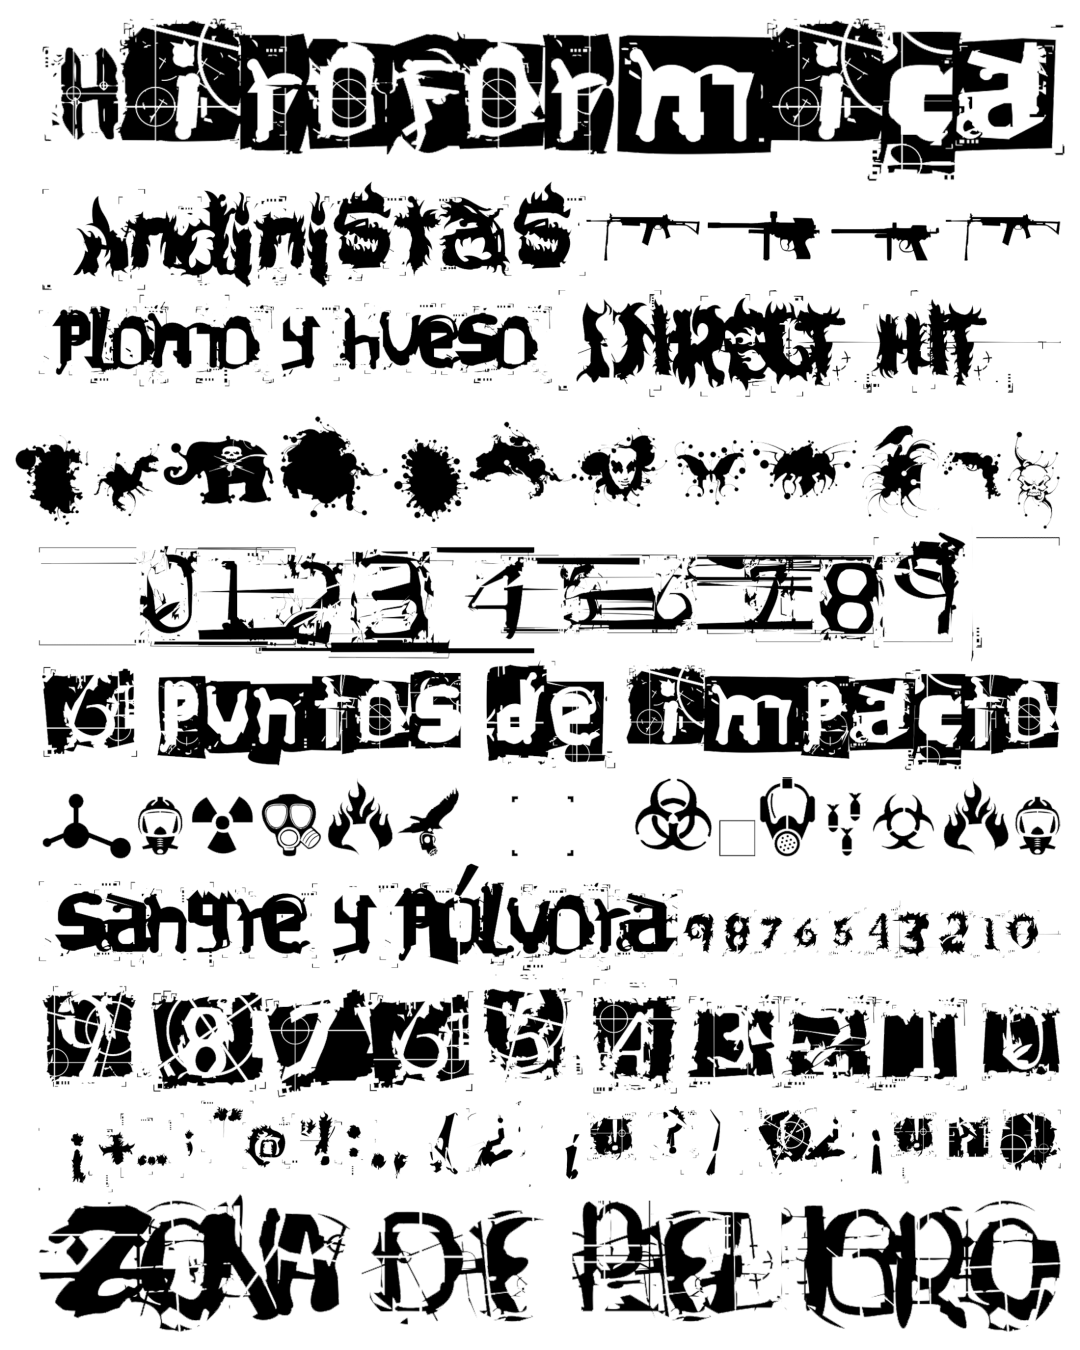 Hiroformica
Andinistas
Plomo y hueso DIRECT HIT
0123456789
6 Puntos de impacto
Sangre y Pólvora 9876543210
9876543210
ZONA DE PELIGRO